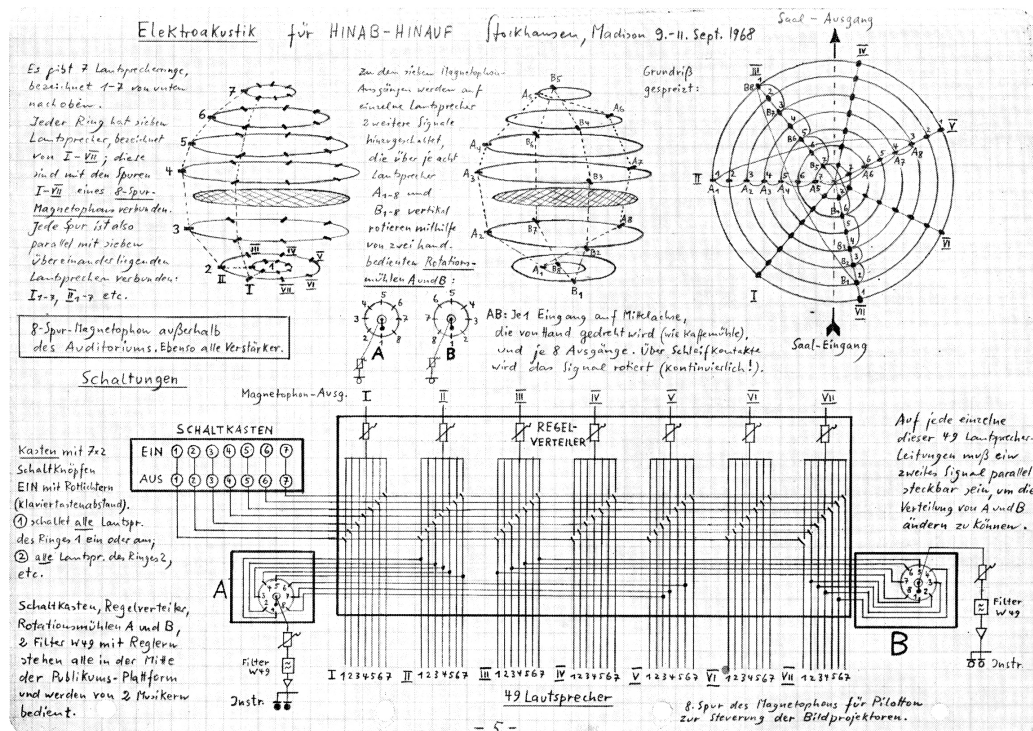 Elektroakustik für HINAB-HINAUF Stockhausen, Madison 9.-11. Sept. 1968
Es gibt 7 Lautsprecherringe,
bezeichnet 1-7 von unten
nach oben.
Jeder Ring hat sieben
Lautsprecher, bezeichnet
von I-VII; diese
sind mit den Spuren
I-VII eines 8-Spur-
Magnetophons verbunden.
Jede Spur ist also
parallel mit sieben
übereinanderliegenden
Lautsprechern verbunden:
I1-7, II1-7 etc.
7
6
5
4
3
2
1
I
II
III
IV
V
VI
VII
Zu den sieben Magnetophon-
Ausgängen werden auf
einzelne Lautsprecher
2 weitere Signale
hinzugeschaltet,
die über je acht
Lautsprecher
A1-8 und
B1-8 vertikal
rotieren mithilfe
von zwei hand-
bedienten Rotations-
mühlen A und B:
B5
A5
A6
B4
A4
B6
A3
A7
B3
A2
B7
A8
B2
A1
B8
B1
Grundriß
gespreizt:
Saal-Ausgang
IV
III
V
II
VI
I
VII
Saal-Eingang
8-Spur-Magnetophon außerhalb
des Auditoriums. Ebenso alle Verstärker.
A B
AB: Je 1 Eingang auf Mittelachse,
die von Hand gedreht wird (wie Kaffemühle),
und je 8 Ausgänge. Über Schleifkontakte
wird das Signal rotiert (kontinuierlich!).
Schaltungen
Magnetophon-Ausg. I II III IV V VI VII
SCHALTKASTEN
EIN 1 2 3 4 5 6 7
AUS 1 2 3 4 5 6 7
REGEL-
VERTEILER
Kasten mit 7x2
Schaltknöpfen
EIN mit Rotlichtern
(Klaviertastenabstand).
1 schaltet alle Lautspr.
des Ringes 1 ein oder aus;
2 alle Lautspr. des Ringes 2,
etc.
Auf jede einzelne
dieser 49 Lautsprecher-
Leitungen muß ein
zweites Signal parallel
steckbar sein, um die
Verteilung von A und B
ändern zu können.
A
B
Schaltkasten, Regelverteiler,
Rotationsmühlen A und B,
2 Filter W49 mit Reglern
stehen alle in der Mitte
der Publikums-Plattform
und werden von 2 Musikern
bedient.
Filter
W49
Instr.
Filter
W49
Instr.
I 1234567 II 1234567 III 1234567 IV 1234567 V 1234567 VI 1234567 VII 1234567
49 Lautsprecher
8. Spur des Magnetophons für Pilotton
zur Steuerung der Bildprojektoren.
- 5 -